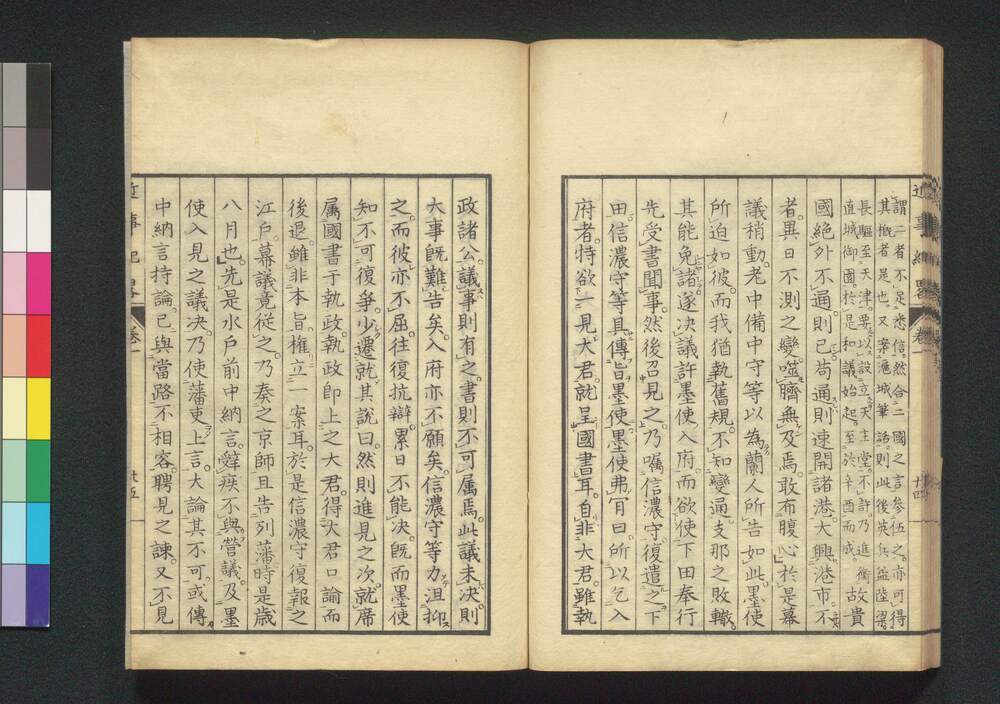 謂二者不足悉信然合二國之言參伍之亦可得
其概者是也又案滬城筆話則此後英兵益陸梁
長驅至天津要以設立天主堂不許乃進衝故
直城御園於是和議始起至於辛酉而成故貴
國絕外不通則已苟通則速開諸港大興港市不
者異日不測之變噬臍無及焉敢布腹心於是幕
議稍動老中備中守等以為蘭人所告如此墨使
所迫如彼而我猶執舊規不知變通支那之敗轍
其能免諸遂決議許墨使入府而欲使下田奉行
先受書聞事然後召見之乃囑信濃守復遣之下
田信濃守等具傳旨墨使墨使弗肎曰所以乞入
府者特欲一見大君就呈國書耳自非大君雖執
近事紀略 卷一 廿四
政諸公議事則有之書則不可屬焉此議未決則
大事旣難告矣入府亦不願矣信濃守等力沮抑
之而彼亦不屈往復抗辯累日不能決旣而墨使
知不可復爭少遷就其說曰然則進見之次就席
屬國書于執政執政卽上之大君得大君口諭而
後退雖非本旨權立一案耳於是信濃守復報之
江戶幕議竟從之乃奏之京師且告列藩時是歲
八月也先是水戶前中納言辭疾不與營議及墨
使入見之議決乃使藩吏上言大論其不可或傳
中納言持論已與當路不相容聘見之諫又不見
近事紀略 卷一 廿五